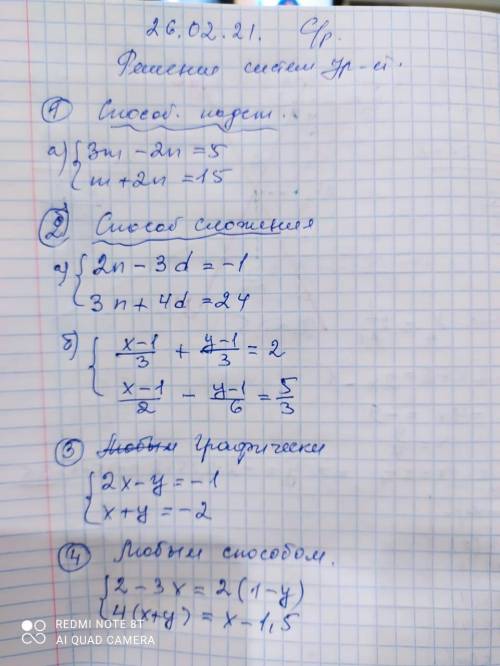 26.02.21. С/р.
Решение систем ур-ст.
① Способ. подст...
а) { 3m - 2n = 5
m + 2n = 15
② Способ сложения
а) { 2n - 3d = -1
3n + 4d = 24
б) { x-1/3 + y-1/3 = 2
x-1/2 - y-1/6 = 5/3
③ Любым графически
{ 2x - y = -1
x + y = -2
④ Любым способом.
{ 2 - 3x = 2(1-y)
4(x+y) = x - 1,5
REDMI NOTE 8T
AI QUAD CAMERA